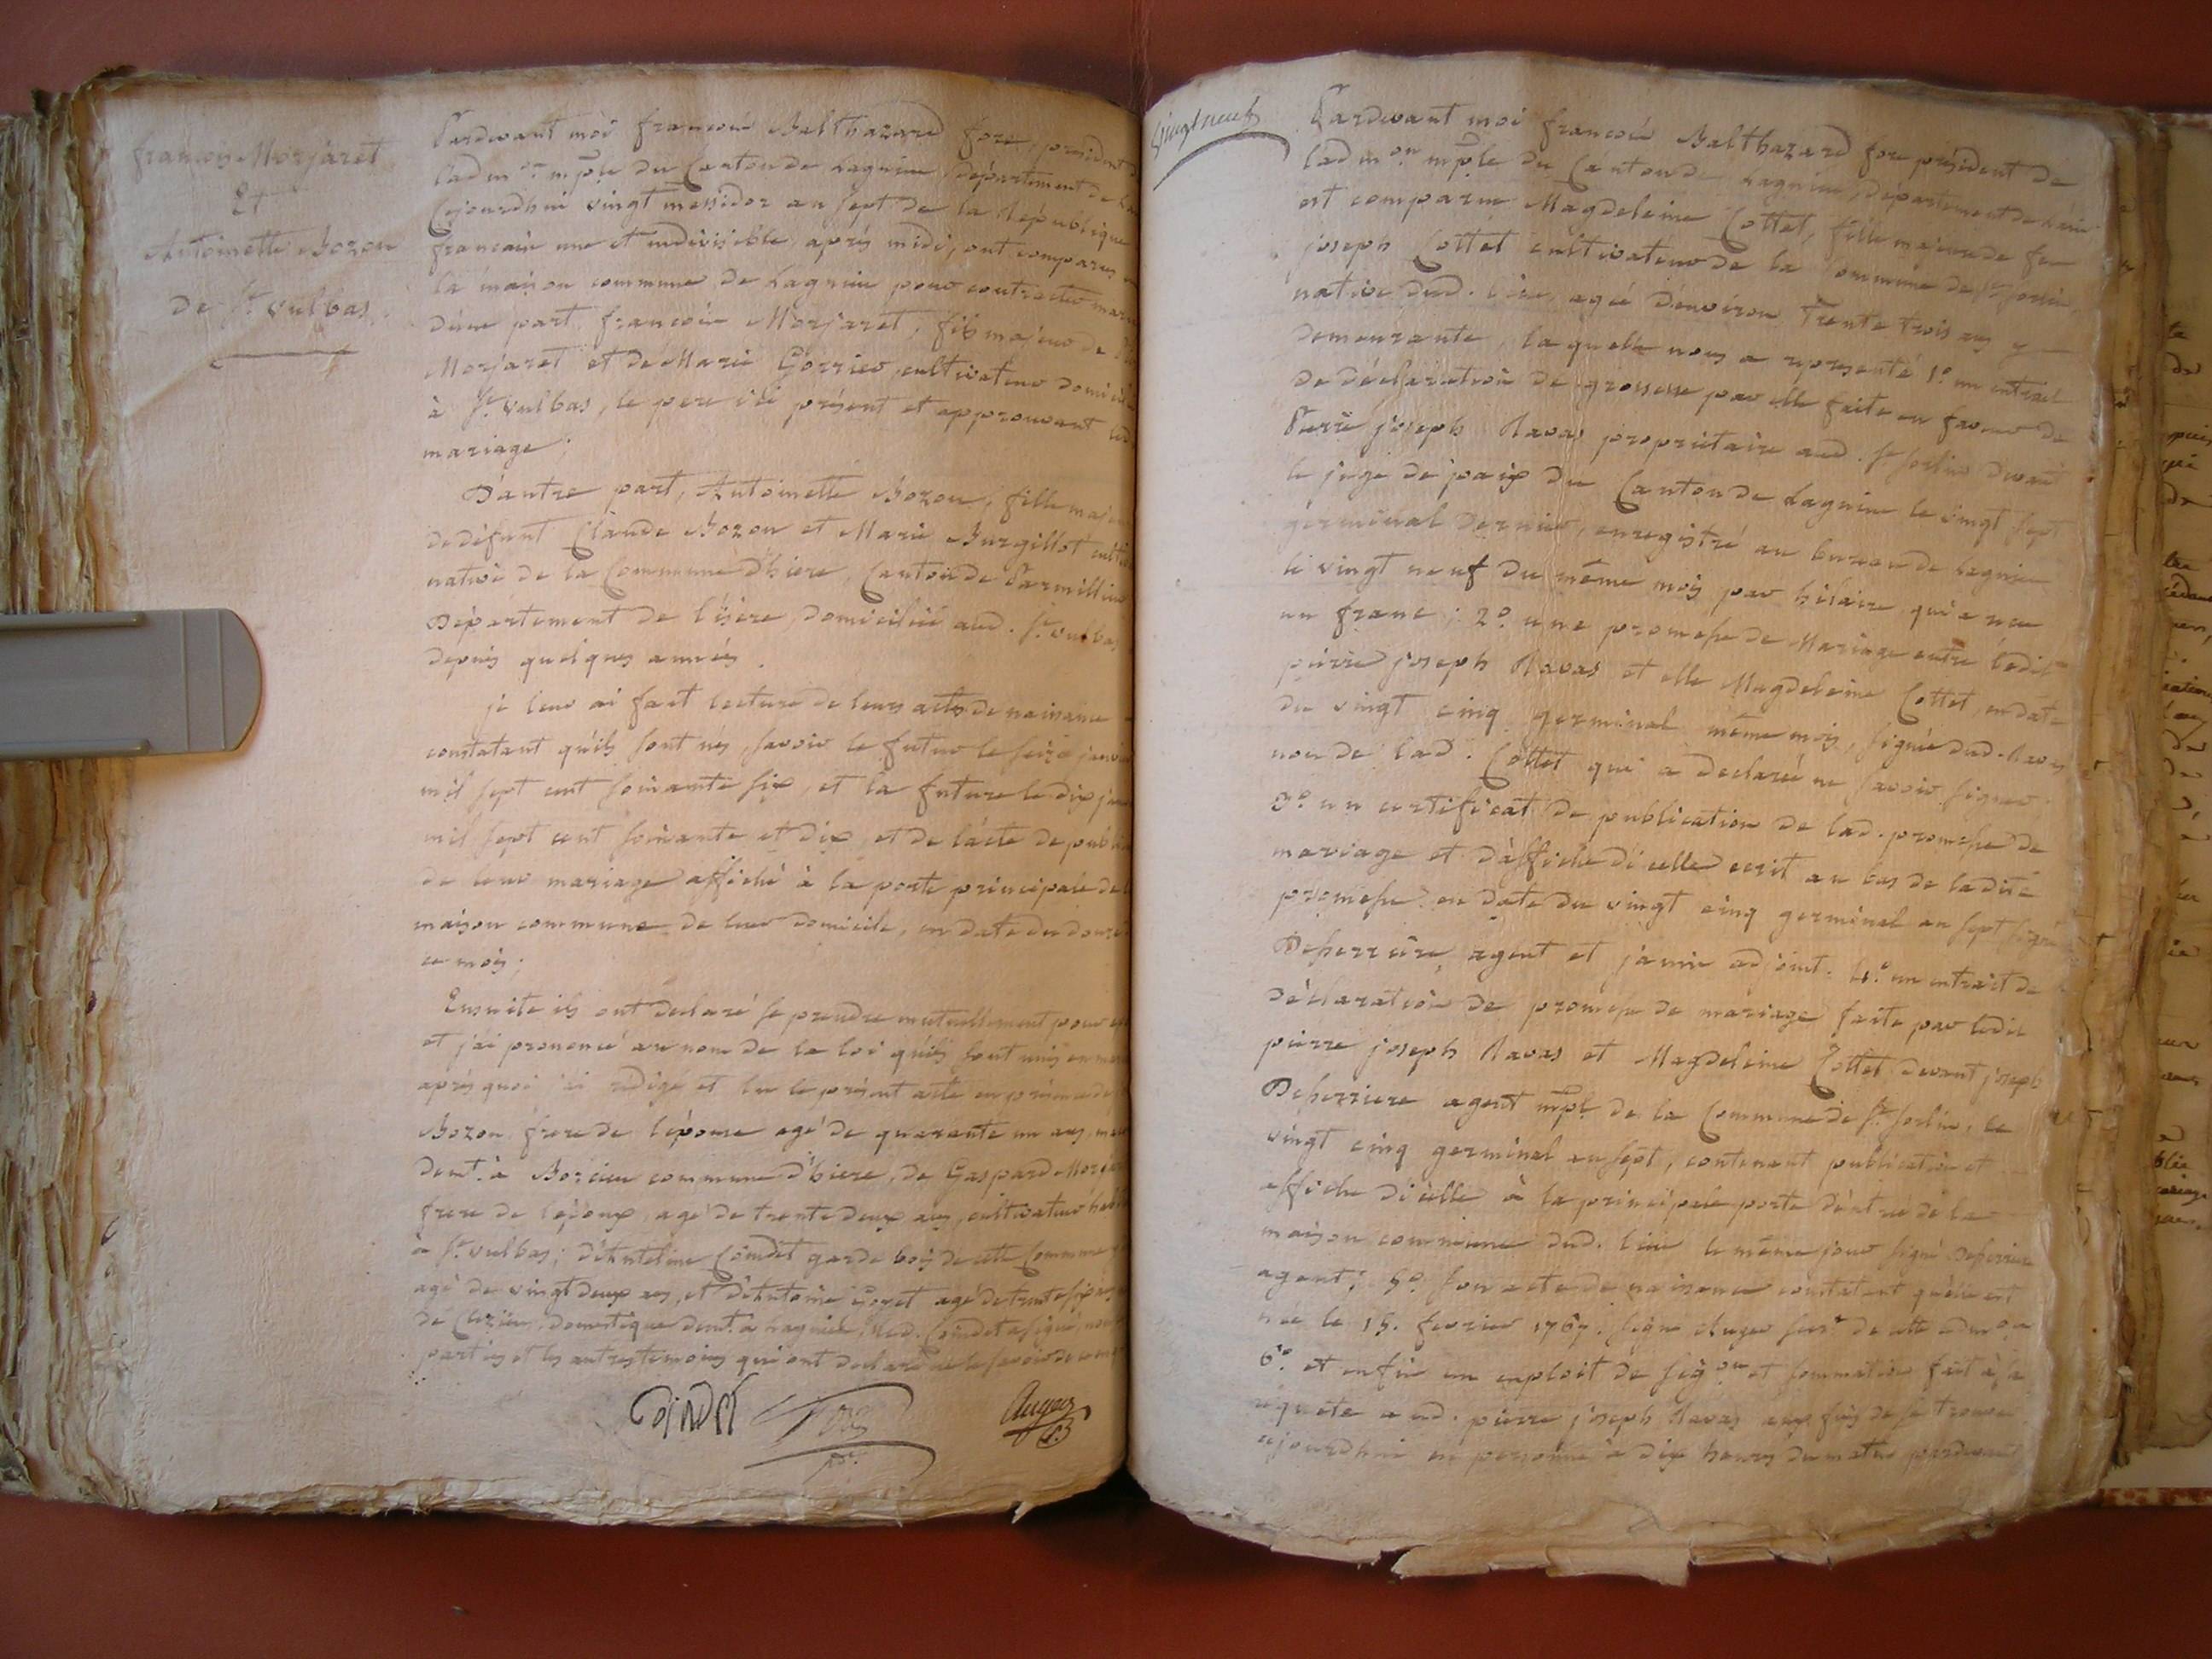 françois Morjaret
Et
Antoinette Bozon
de St. vulbas.
Pardevant moi francois Balthazard fore, president
lad mon mple du Canton de Lagnieu département de
Cejourdhui vingt messidor an sept de la République
francaise une et indivisible, après midi, ont comparus
la maison commune de Lagnieu pour contracter
d'une part, francois Morjaret, fils majeur de
Morjaret et de Marie Gorrier, cultivateur
à St. vulbas, le pere ici présent et approuvant
mariage;
D'autre part, Antoinette Bozon, fille
de défunt Claude Bozon et Marie Burgillot
native de la Commune d'hiere, Canton de Parmillieu
Département de l'isère, domiciliée aud. St. vulbas
depuis quelques années.
je leur ai fait lecture de leurs actes de naissance
constatant qu'ils sont nés, savoir le futur le seize
mil sept cent soixante six, et la future le dix
mil sept cent soixante et dix, et de l'acte de
de leur mariage affiché à la porte principale de
maison commune de leur domicile, en date du douze
ce mois;
Ensuite ils ont declaré se prendre mutuellement pour
et j'ai prononcé au nom de la loi qu'ils sont unis en
après quoi j'ai rédigé et lu le présent acte en présence de
Bozon, frere de l'épouse agé de quarante un ans,
demt. à commune d'hiere, de Gaspard
frere de l'époux, agé de trente deux ans, cultivateur
à St. vulbas; d'Antelme Coindet garde bois de cette Commune
agé de vingt deux ans, et d'Antoine agé de trente six ans
de domestique demt. à Lagnieu, led. Coindet a signé, non
parties et les autres temoins qui ont declaré ne le savoir de ce
Coindet fore Auger
Vingt neuf
Pardevant moi francois Balthazard fore président de
lad mon mple du Canton de Lagnieu, département de L'ain
est comparue Magdeleine Cottet, fille majeure de feu
joseph Cottet cultivateur de la Commune de St. Sorlin,
native dud. lieu, agée d'environ trente trois ans y
demeurante, laquelle nous a représenté 1o. un extrait
de déclaration de grossesse par elle faite en faveur de
Pierre joseph Ravas propriétaire aud. St. Sorlin devant
le juge de paix du Canton de Lagnieu le vingt sept
germinal dernier, enregistré au bureau de Lagnieu
le vingt neuf du même mois par hilaire qui a recu
un franc; 2o. une promesse de Mariage entre ledit
pierre joseph Ravas et elle Magdeleine Cottet, en date
du vingt cinq germinal même mois, signée dud. Ravas
non de lad. Cottet qui a declaré ne savoir signer
3o. un certificat de publication de lad. promesse de
mariage et d'affiche d'icelle ecrit au bas de ladite
promesse en date du vingt cinq germinal an sept signé
Deferriere, agent et adjoint. 4o. un extrait de
déclaration de promesse de mariage faite par ledit
pierre joseph Ravas et Magdeleine Cottet devant joseph
Deferriere agent mpl de la Commune de St. Sorlin, le
vingt cinq germinal an sept, contenant publication et
affiche d'icelle à la principale porte d'entrée de la
maison commune dud. lieu le même jour signé Deferriere
agent; 5o. son acte de naissance constatant qu'elle est
née le 15. fevrier 1767. signé Auger secr. de cette admon
6o. et enfin un exploit de sigon et sommation fait à sa
requete aud. pierre joseph Ravas aux fins de se trouver
cejourdhui en personne à dix heures du matin pardevant